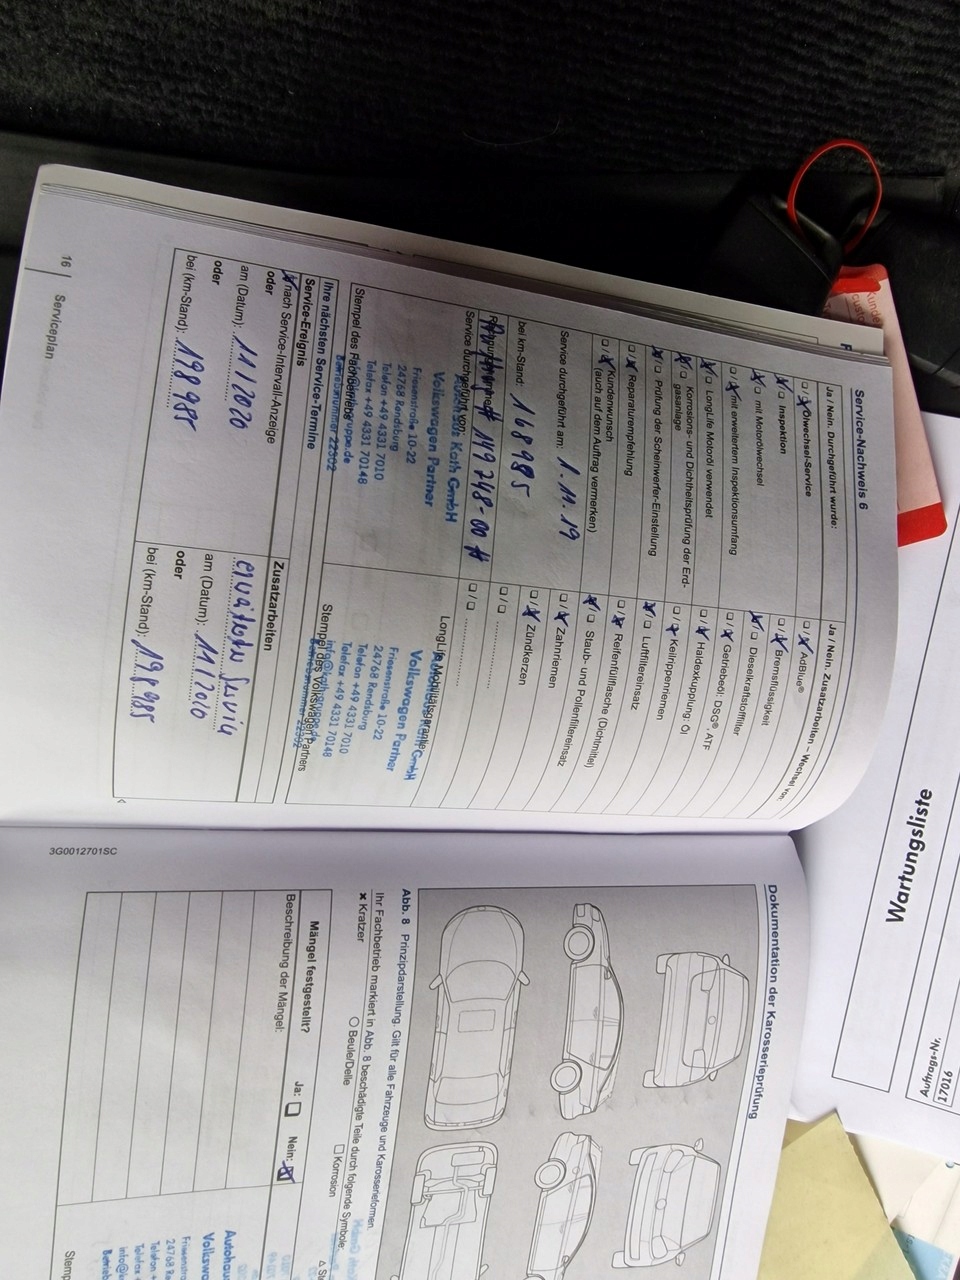 Service-Nachweis 6
Ja / Nein. Durchgeführt wurde:
Ölwechsel-Service
Inspektion
mit Motorölwechsel
mit erweitertem Inspektionsumfang
LongLife Motoröl verwendet
Korrosions- und Dichtheitsprüfung der Erd-
gasanlage
Prüfung der Scheinwerfer-Einstellung
Reparaturempfehlung
Kundenwunsch
(auch auf dem Auftrag vermerken)
Service durchgeführt am: 1.11.19
bei km-Stand: 168985
# 149248-00 #
Service durchgeführt von:
Autohaus Kath GmbH
Volkswagen Partner
Friesenstraße 10-22
24768 Rendsburg
Telefon +49 4331 7010
Telefax +49 4331 70148
Betriebsnummer 22302
Stempel des Fachbetriebs
Ja / Nein. Zusatzarbeiten – Wechsel von:
AdBlue®
Bremsflüssigkeit
Dieselkraftstofffilter
Getriebeöl: DSG®, ATF
Haldexkupplung: Öl
Keilrippenriemen
Luftfiltereinsatz
Reifenfüllflasche (Dichtmittel)
Staub- und Pollenfiltereinsatz
Zahnriemen
Zündkerzen
LongLife Mobilitätsgarantie
Autohaus Kath GmbH
Volkswagen Partner
Friesenstraße 10-22
24768 Rendsburg
Telefon +49 4331 7010
Telefax +49 4331 70148
Stempel des Volkswagen Partners
Ihre nächsten Service-Termine
Service-Ereignis
nach Service-Intervall-Anzeige
oder
am (Datum): 11/2020
oder
bei (km-Stand): 198985
Zusatzarbeiten
am (Datum): 11/2010
oder
bei (km-Stand): 198985
16
Serviceplan
Dokumentation der Karosserieprüfung
Abb. 8 Prinzipdarstellung. Gilt für alle Fahrzeuge und Karosserieformen.
Ihr Fachbetrieb markiert in Abb. 8 beschädigte Teile durch folgende Symbole:
Kratzer
Beule/Delle
Korrosion
Mängel festgestellt?
Ja:
Nein:
Beschreibung der Mängel:
3G0012701SC
Wartungsliste
Auftrags-Nr.
17016